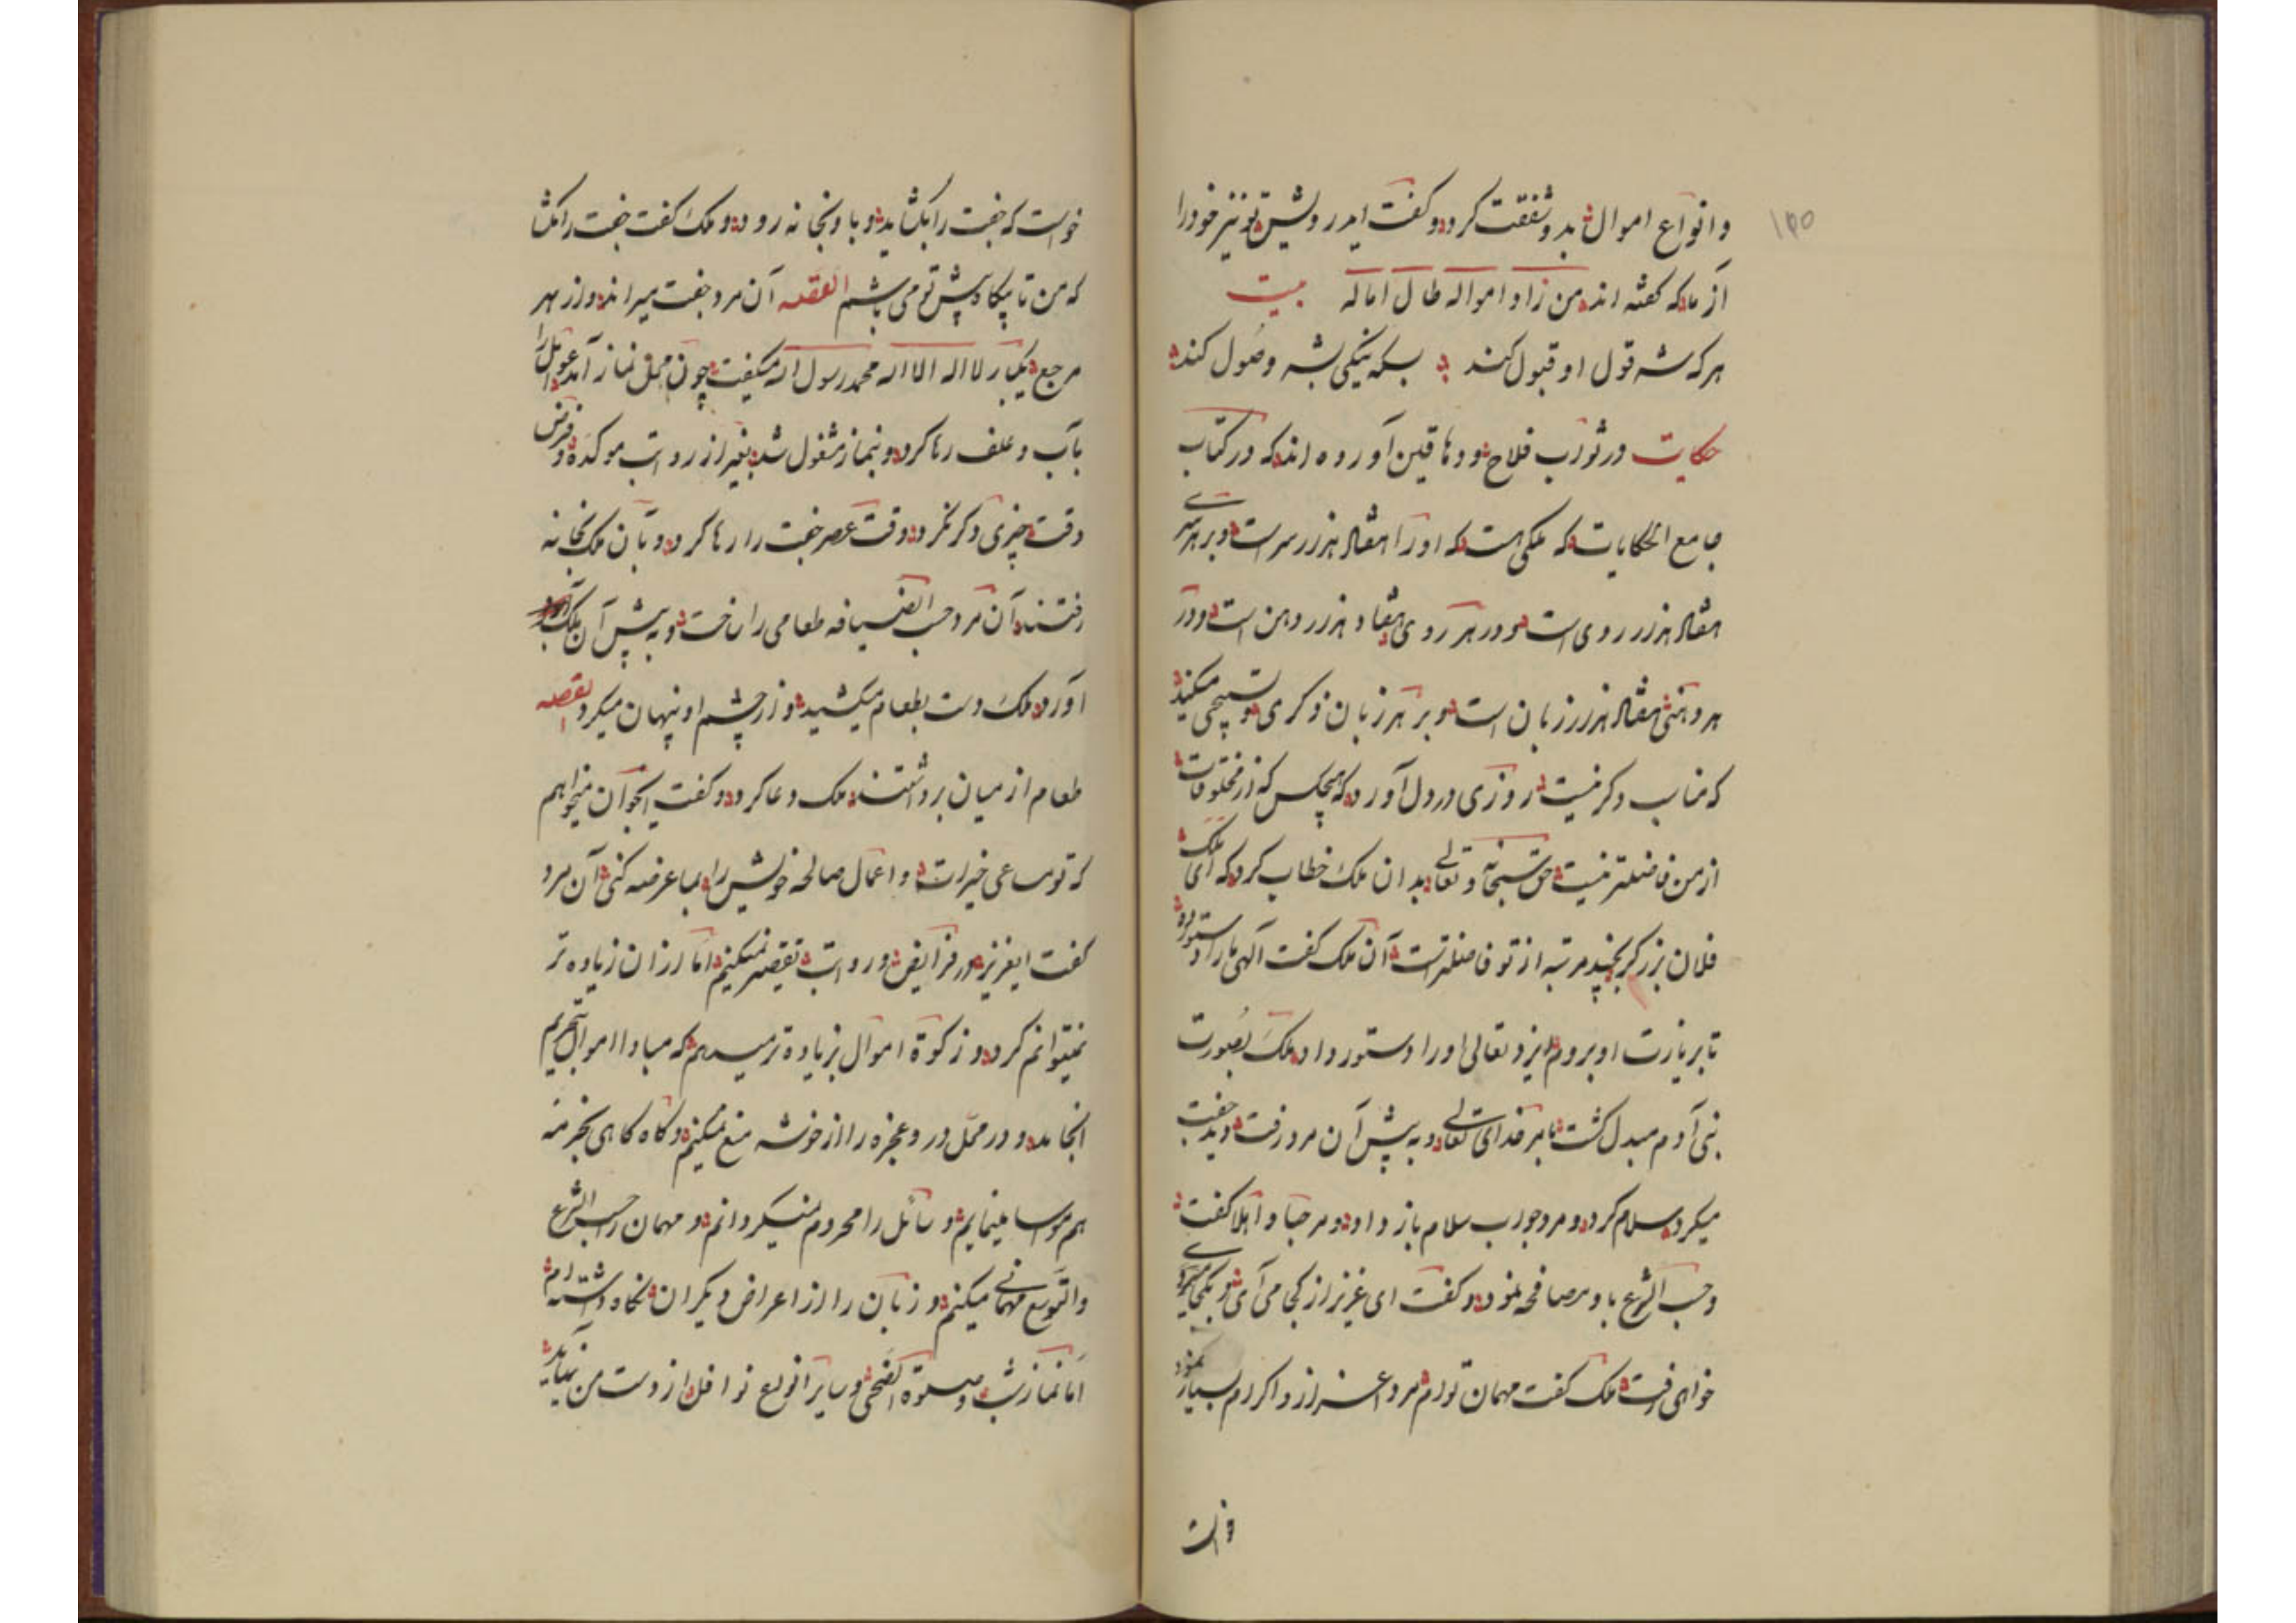 ۱۴۵
و انواع اموال بدو شفقت کرد و گفت ایدرویش تو نیز خود را
از ما که گفته اند من زاد امواله طال اماله بیت
هر که شه قول او قبول کند بسکه نیکی بشه وصول کند
حکایت در ثواب فلاح و دهاقین آورده اند که در کتاب
جامع الحکایات که ملکی هست که او را هفتاد هزار سر است و بر هر سری
هفتاد هزار روی است و در هر روی هفتاد هزار دهن است و در
هر دهنی هفتاد هزار زبان است و بر هر زبان ذکری و تسبیحی میکند
که مناسب دگر نیست روزی در دل آورد که هیچکس که از مخلوقات
از من فاضلتر نیست حق سبحانه و تعالی بدان ملک خطاب کرد که ای ملک
فلان برزگر بچند مرتبه از تو فاضلتر است آن ملک گفت الهی ما را دستور ده
تا بزیارت او بروم ایزد تعالی او را دستور داد ملک بصورت
بنی آدم مبدل گشت بامر خدای تعالی و به پیش آن مرد رفت دید جفت
میکرد سلام کرد و مرد جواب سلام باز داد و مرحبا و اهلا گفت
و حسب الشرع با وی مصافحه نمود و گفت ای عزیز از کجا می آی و بکجا
خواهی رفت ملک گفت مهمان تو ام مرد اعزاز و اکرام بسیار نمود
خواست
خواست که جفت را بکشاید و با او بخانه رود و ملک گفت جفت را مکشا
که من تا پیکاه پیش تو می باشم القصه آن مرد جفت میراند و از بهر
مرجع یکبار لا اله الا الله محمد رسول الله میگفت چون محل نماز آمد عوامل را
بآب و علف رها کرد و بنماز مشغول شد بغیر از رواتب موکده و فرض
وقت چیزی دکر نکرد وقت عصر جفت را رها کرد و بآن ملک بخانه
رفتند آن مرد حسب الضیافه طعامی را ساخت و به پیش آن ملک
آورد ملک دست بطعام میکشید و از چشم او پنهان میکرد القصه
طعام از میان برداشتند ملک دعا کرد و گفت ایجوان میخواهم
که تو مساعی خیرات و اعمال صالحه خویش را بما عرضه کنی آن مرد
گفت ایعزیز در فرایض و رواتب تقصیر نمیکنیم اما از آن زیاده تر
نمیتوانم کرد و زکوة اموال زیاده تر میدهم که مبادا اموال بتحریم
انجامد و در محل درو عجزه را از خوشه منع نمیکنیم و کاه کاهی بخرمنه
هم مواسا مینمایم و سائل را محروم نمیکردانم و مهمان را حسب الشرع
والتوسع مهمانی میکنم و زبان را از اعراض دیکران نکاه داشته ام
اما نماز شب و صلوة الضحی و سایر انواع نوافل از دست من نیاید